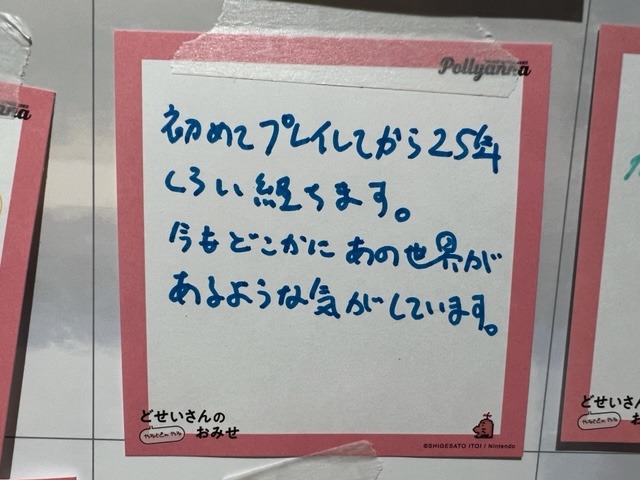 Pollyanna
初めてプレイしてから25年
くらい経ちます。
今もどこかにあの世界が
あるような気がしています。
どせいさんの
おみせ
©SHIGESATO ITOI / Nintendo